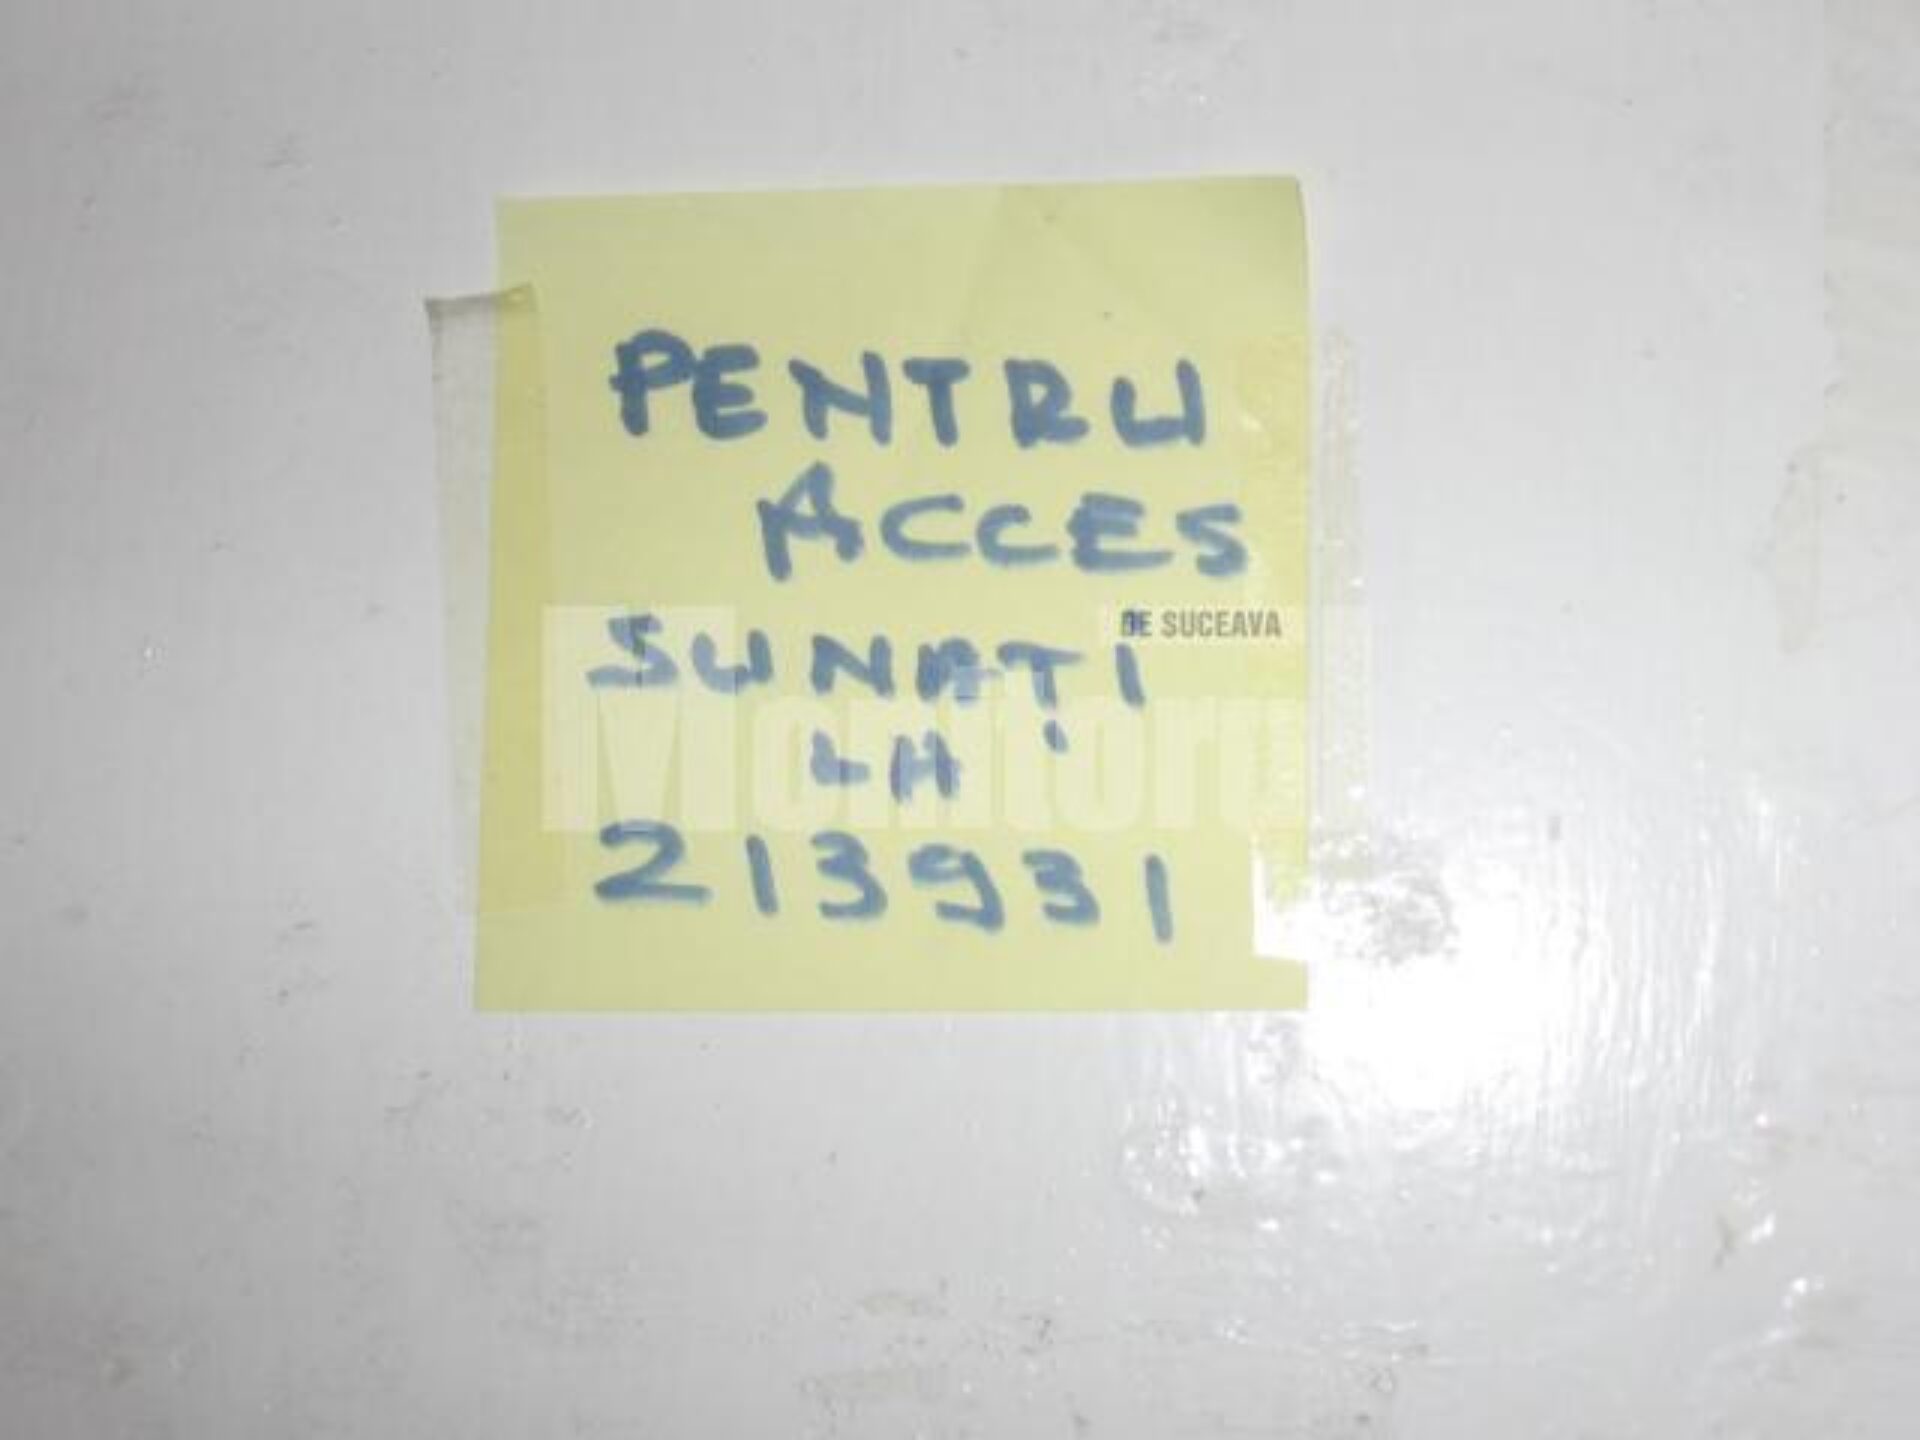 PENTRU
ACCES
DE SUCEAVA
SUNAȚI
Monitorul
LA
213931